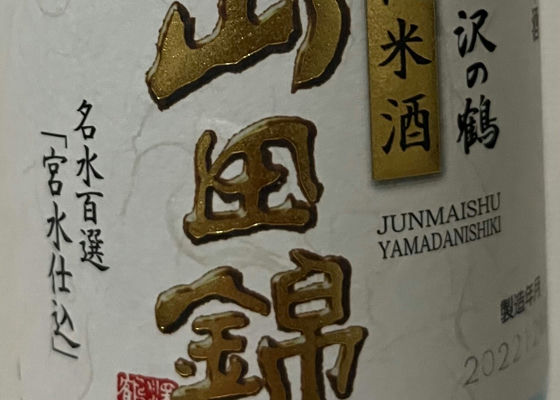 沢の鶴
米酒
JUNMAISHU
YAMADANISHIKI
製造年月
山田錦
名水百選
「宮水仕込」